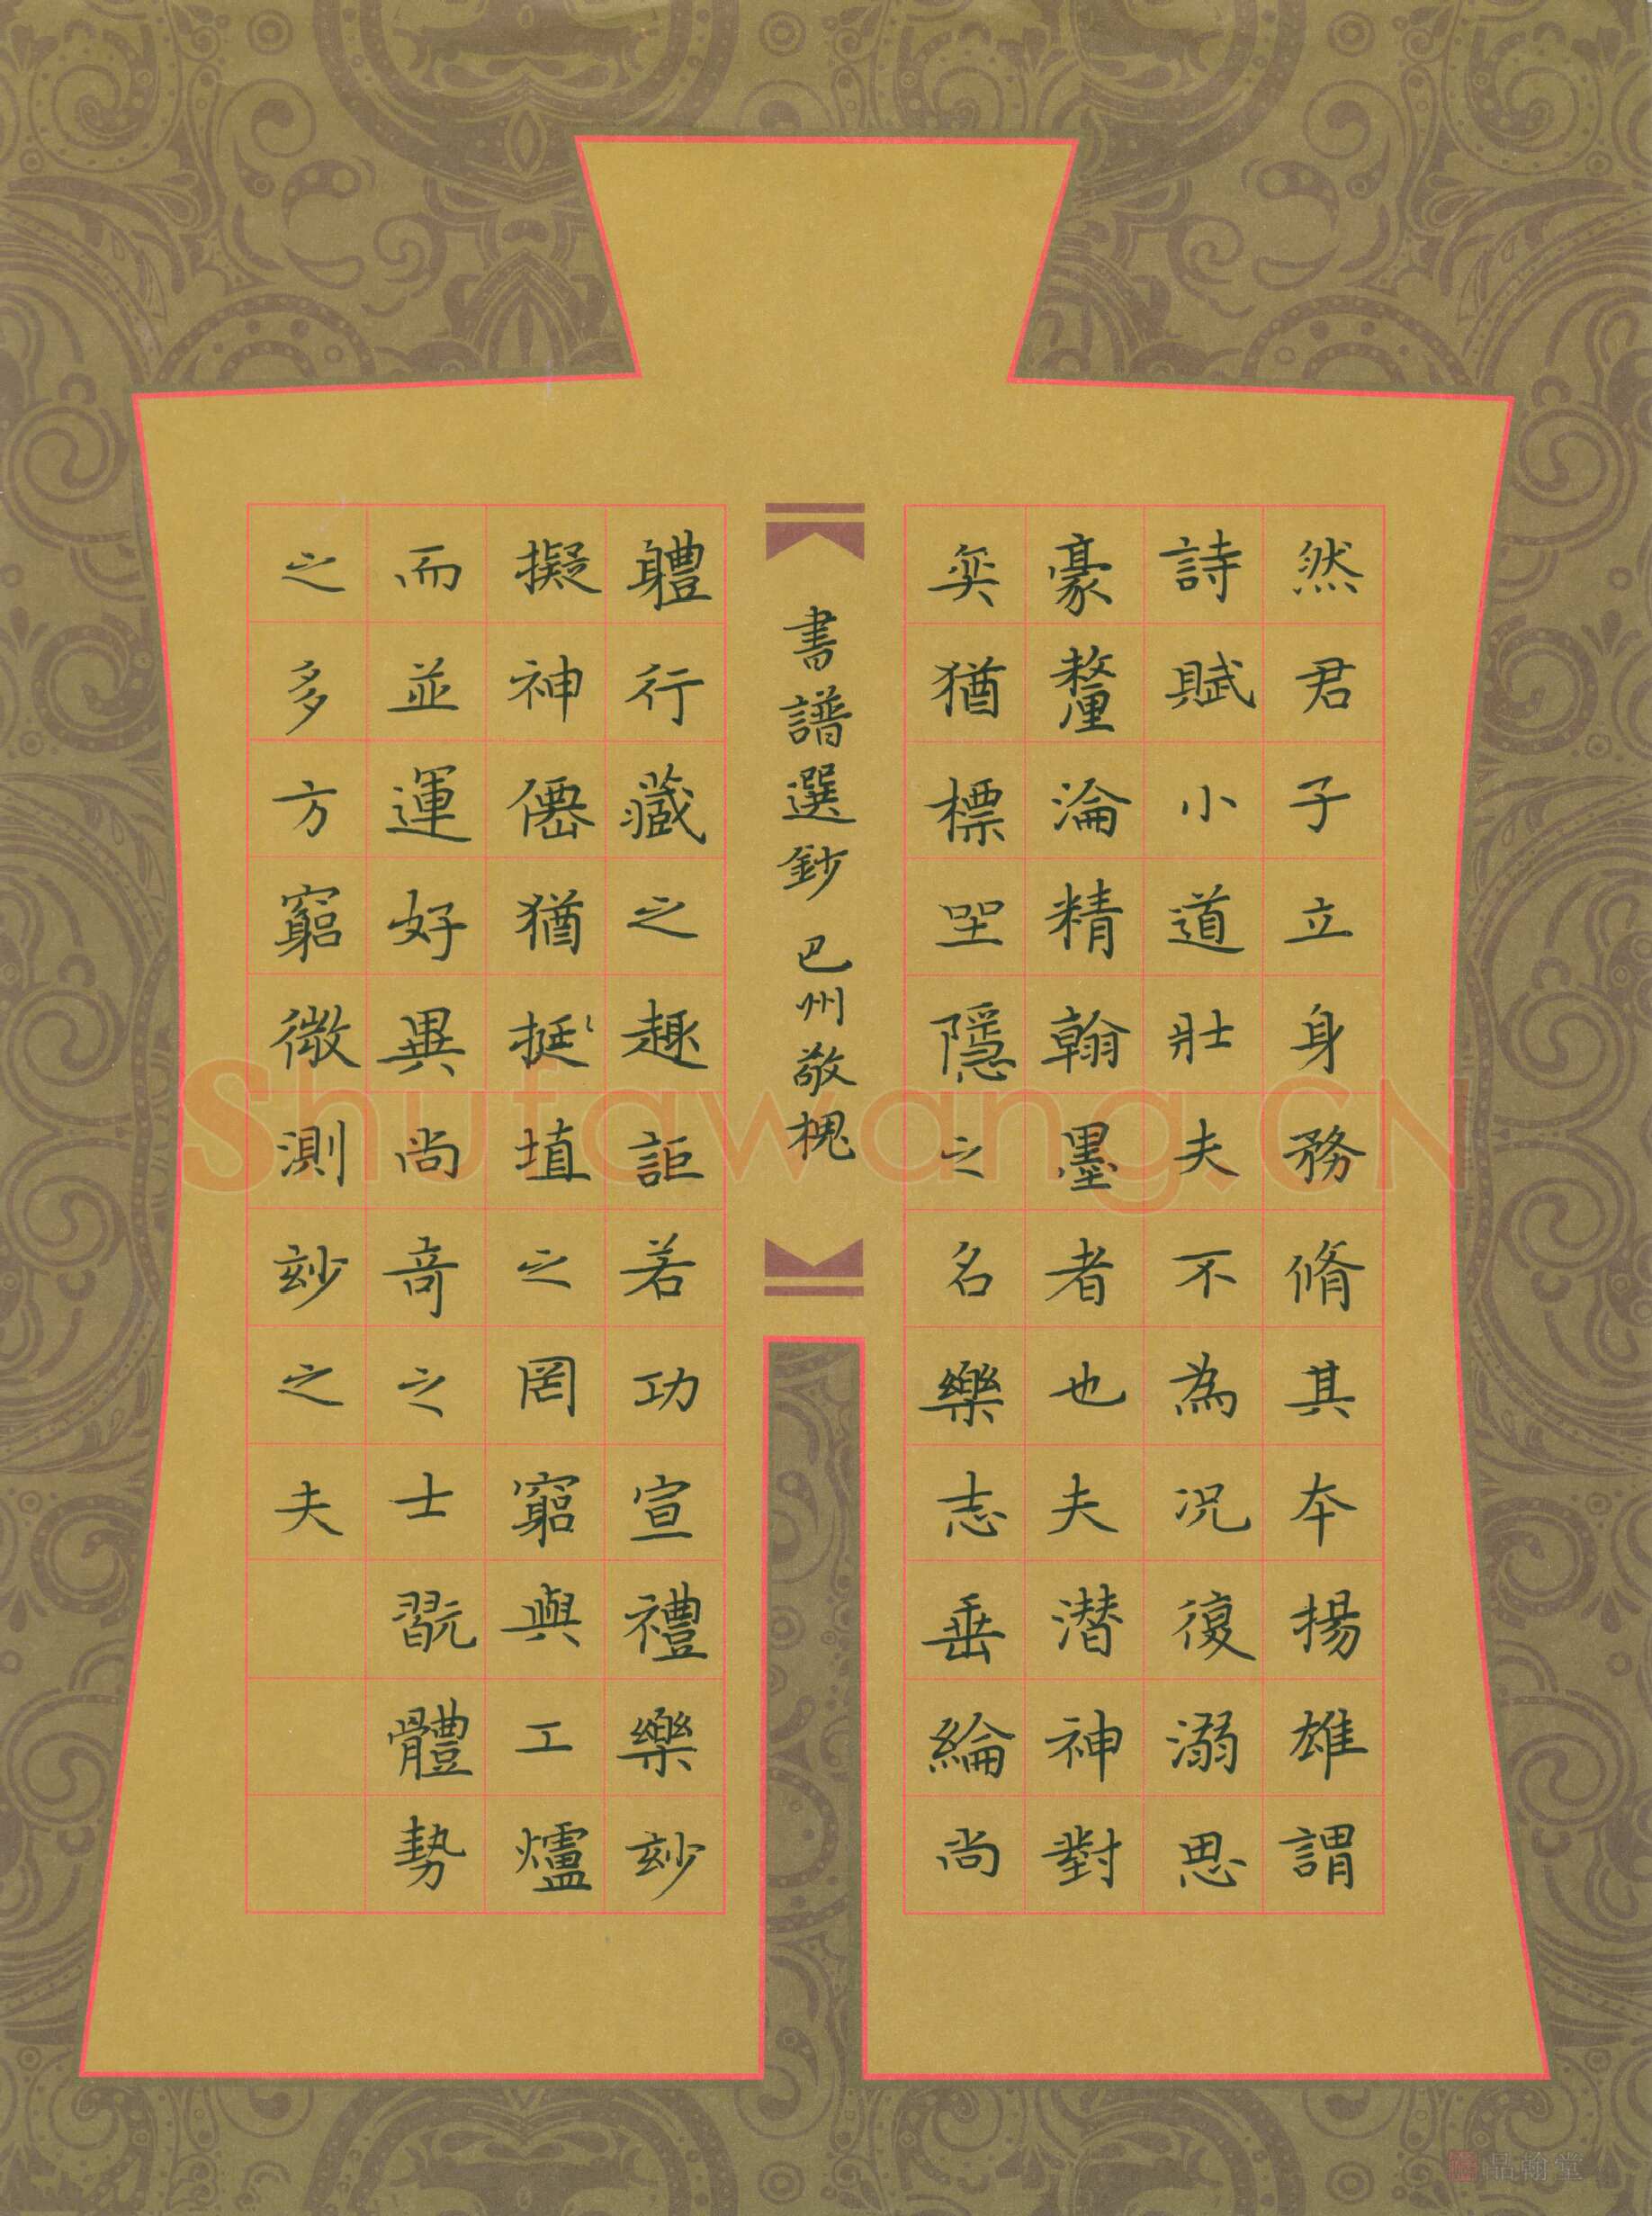 然君子立身務脩其本揚雄謂
詩賦小道壯夫不為况復溺思
豪釐淪精翰墨者也夫潛神對
奕猶標坐隱之名樂志垂綸尚
書譜選鈔 巴州敬槐
軆行藏之趣詎若功宣禮樂妙
擬神僊猶挻埴之罔窮與工爐
而並運好異尚奇之士翫體勢
之多方窮微測妙之夫
Shufawang.CN
品翰堂